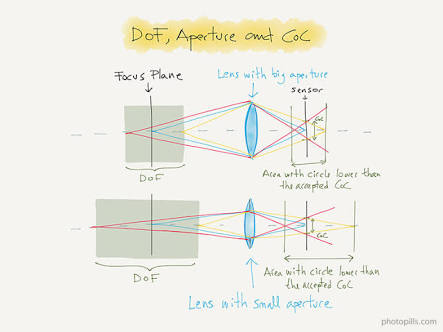 DoF, Aperture and CoC
Focus Plane
Lens with big aperture
sensor
CoC
DoF
Area with circle lower than
the accepted CoC
CoC
DoF
Area with circle lower than
the accepted CoC
Lens with small aperture
photopills.com